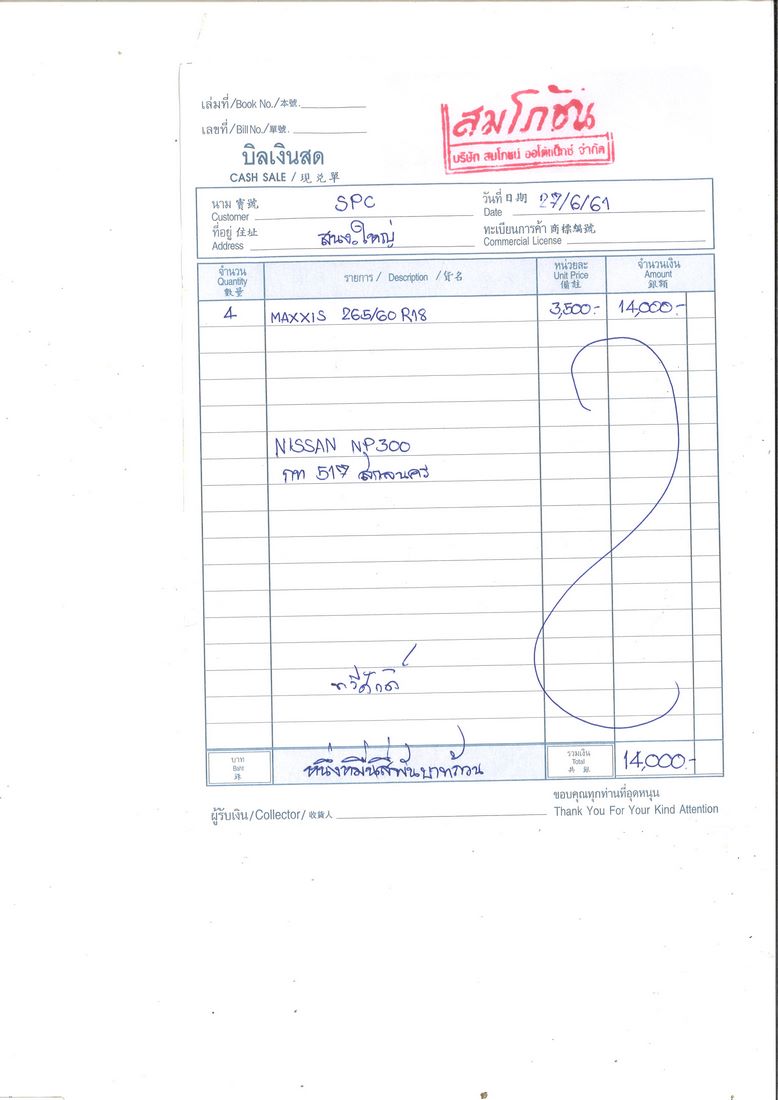 เล่มที่/Book No./本號.
สมโภชน์
เลขที่/Bill No./單號.
บริษัท สมโภชน์ ออโต้แม็กซ์ จำกัด
บิลเงินสด
CASH SALE / 現兌單
นาม 寳號 SPC วันที่ 日期 27/6/61
Customer Date
ที่อยู่ 住址 สนง.ใหญ่ ทะเบียนการค้า 商標編號
Address Commercial License
จำนวน รายการ / Description / 貨名 หน่วยละ จำนวนเงิน
Quantity Unit Price Amount
數量 價註 銀額
4 MAXXIS 265/60 R18 3,500.- 14,000.-
NISSAN NP300
กท 517 สกลนคร
ทวีศักดิ์
บาท หนึ่งหมื่นสี่พันบาทถ้วน รวมเงิน 14,000.-
Baht Total
銖 共銀
ขอบคุณทุกท่านที่อุดหนุน
ผู้รับเงิน/Collector/收貨人 Thank You For Your Kind Attention